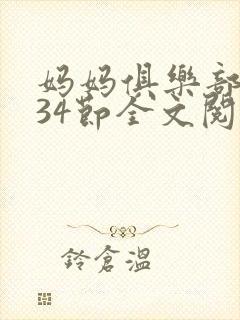 妈妈俱樂部
34節全文閱
鈴倉溫